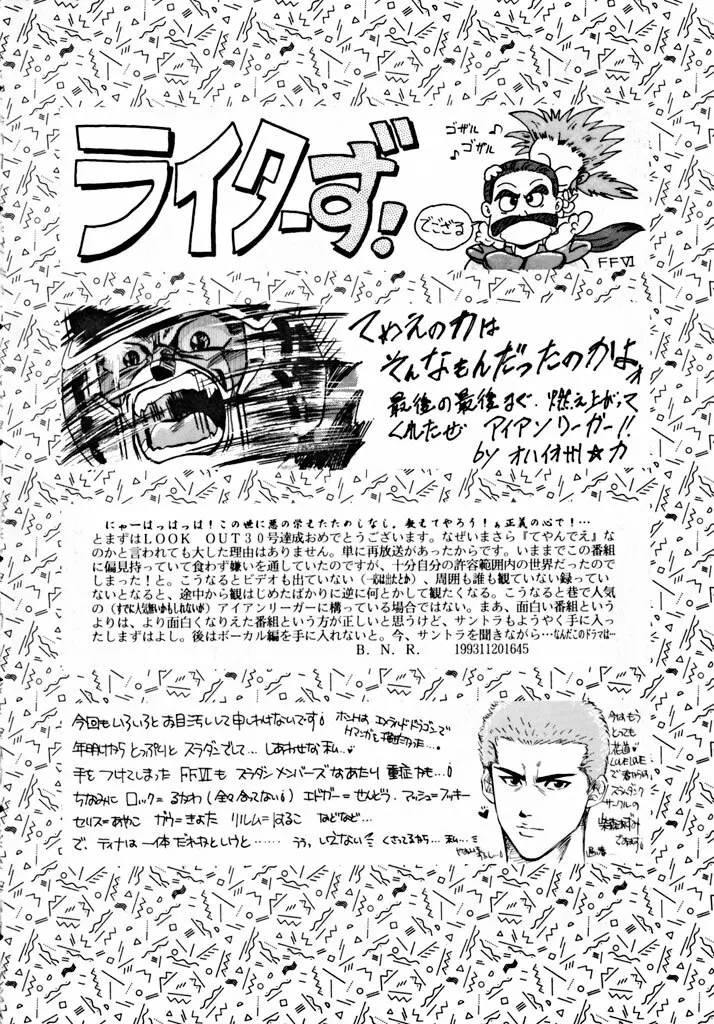 ライターず!
ゴザル♪
♪ゴザル
でござる
FFVI
てめえの力は
そんなもんだったのかよォ
最後の最後まで、燃え上がって
くれたぜ アイアンリーガー!!
by オハイオ州☆力
にゃーはっはっは!この世に悪の栄えたためしなし。教えてやろう!ぁ正義の心で!…
とまずはLOOK OUT30号達成おめでとうございます。なぜいまさら『てやんでえ』な
のかと言われても大した理由はありません。単に再放送があったからです。いままでこの番組
に偏見持っていて食わず嫌いを通していたのですが、十分自分の許容範囲内の世界だったので
しまった!と。こうなるとビデオも出ていない(一説出たとか)、周囲も誰も観ていない録ってい
ないとなると、途中から観はじめたばかりに逆に何とかして観たくなる。こうなると巷で人気
の(すでに人気無いかもしれないが)アイアンリーガーに構っている場合ではない。まあ、面白い番組という
よりは、より面白くなりえた番組という方が正しいと思うけど、サントラもようやく手に入っ
たしまずはよし。後はボーカル編を手に入れないと。今、サントラを聞きながら…なんだこのドラマは…
B.N.R. 199311201645
今回もいろいろとお目汚しして申しわけないです!
年明けから とっぷりと スラダンでして… しあわせな 私…
手をつけてしまった FFVIも スラダンメンバーズなあたり 重症かも…!
ちなみに ロック=るかわ(全々合ってない!) エドガー=せんどう、マッシュ=フッキー
セリス=あやこ ガウ=きよた リルム=はるこ などなど…
で、ティナは一体だれなんというと…… うぅ、いえない くさってるから…私…
今はもう
とても
花道
LOVELOVE